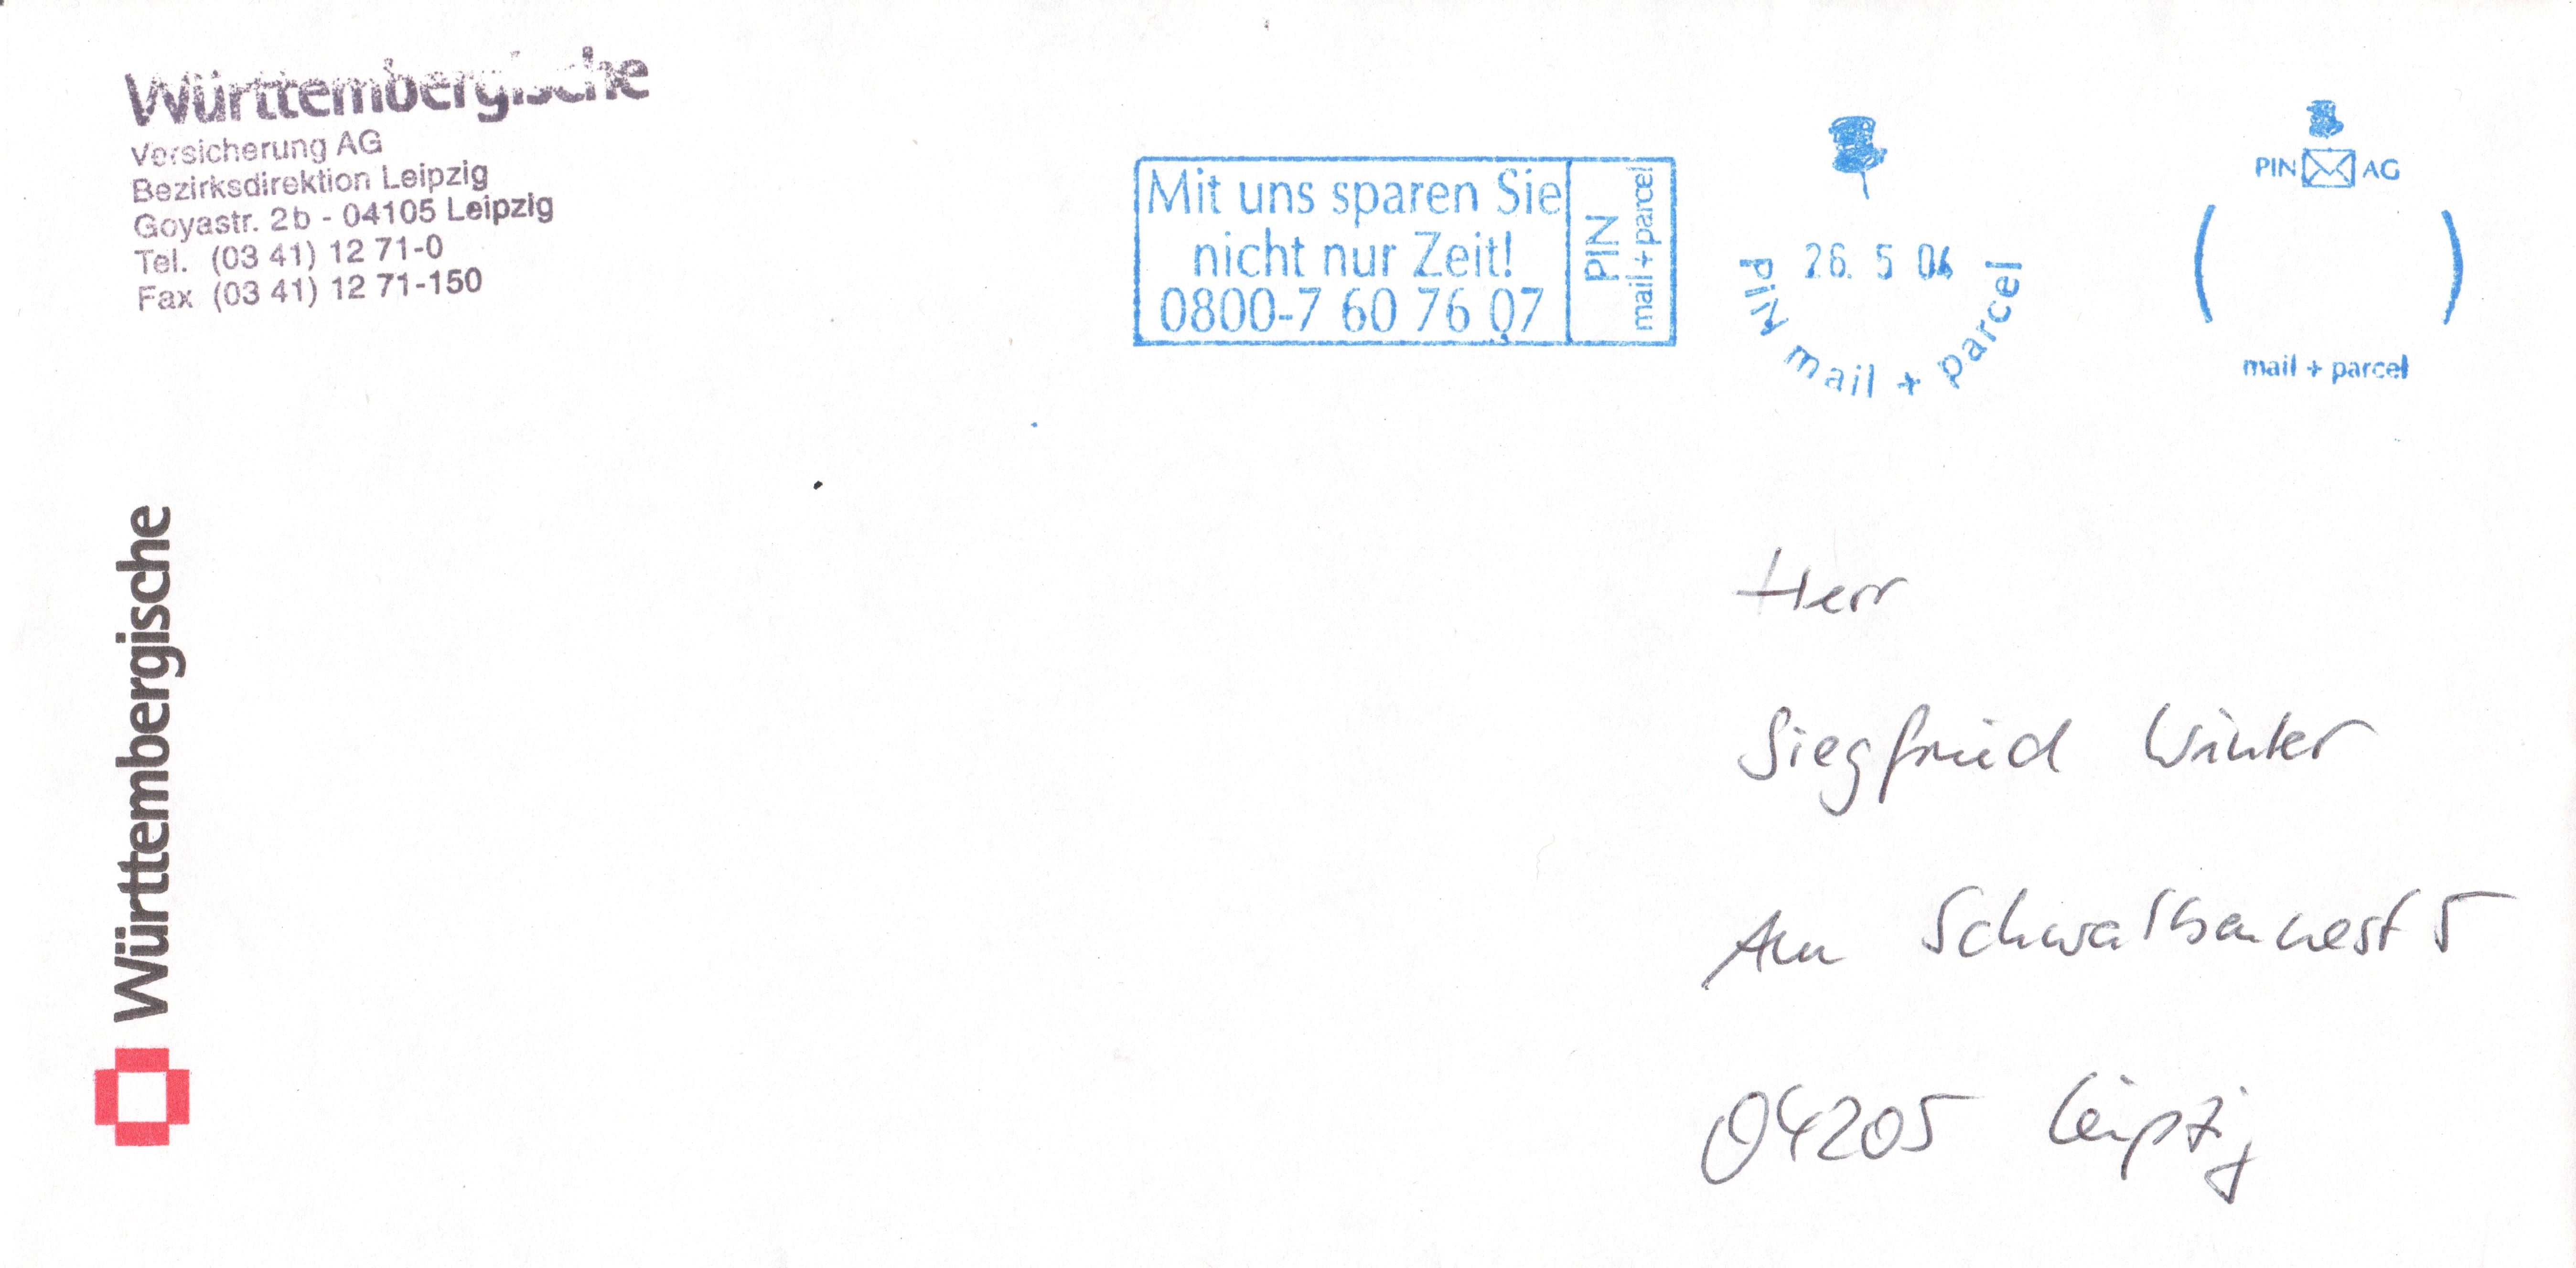 Württembergische
Versicherung AG
Bezirksdirektion Leipzig
Goyastr. 2b - 04105 Leipzig
Tel. (03 41) 12 71-0
Fax (03 41) 12 71-150
Mit uns sparen Sie
nicht nur Zeit!
0800-7 60 76 07
PIN
mail+parcel
26. 5 04
PIN mail + parcel
PIN AG
mail + parcel
Württembergische
Herr
Siegfried Winter
Am Schwalbennest 5
04205 Leipzig